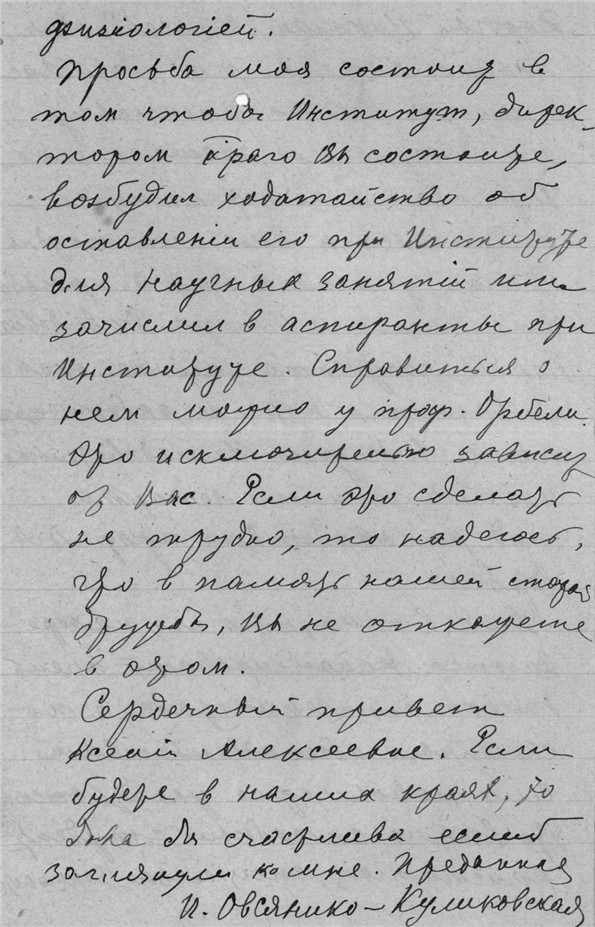 физіологіей.
Просьба моя состоит в
том чтобы Институт, дирек-
тором котраго Вы состоите,
возбудил ходатайство об
оставленіи его при Институте
для научных занятій или
зачислил в аспиранты при
Институте. Справиться о
нем можно у проф. Орбели.
Это исключительно зависит
от Вас. Если это сделать
не трудно, то надеюсь,
что в память нашей старой
дружбы, Вы не откажете
в этом.
Сердечный привет
Ксеніи Алексеевне. Если
будете в наших краях, то
была бы счастлива еслиб
заглянули ко мне. Преданная
И. Овсянико-Куликовская